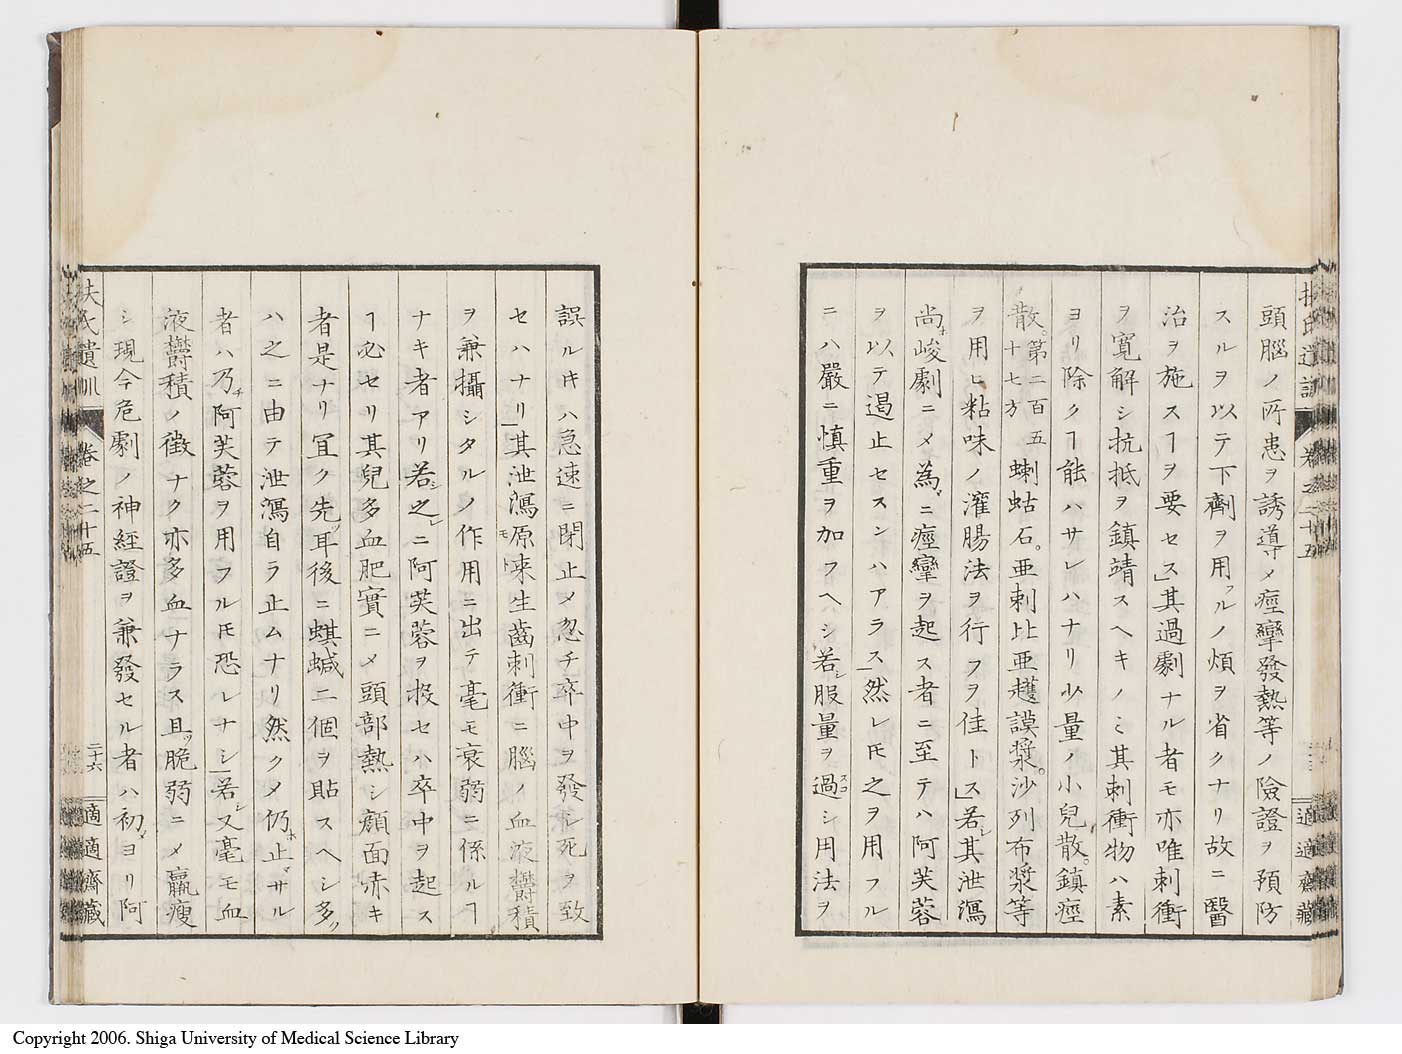 扶氏遺訓 卷之二十五 適適齋藏
頭腦ノ所患ヲ誘導〆痙攣發熱等ノ險證ヲ預防
スルヲ以テ下劑ヲ用フルノ煩ヲ省クナリ故ニ醫
治ヲ施スヿヲ要セス」其過劇ナル者モ亦唯刺衝
ヲ寬解シ抗抵ヲ鎮靖スヘキノミ其刺衝物ハ素
ヨリ除クヿ能ハサレハナリ少量ノ小兒散。鎮痙
散。第二百五十七方蝲蛄石。亜刺比亜䕶謨漿。沙列布漿等
ヲ用ヒ粘味ノ灌腸法ヲ行フヲ佳トス」若シ其泄瀉
尚ホ峻劇ニ〆為ニ痙攣ヲ起ス者ニ至テハ阿芙蓉
ヲ以テ遏止セスンハアラス」然レ𪜈之ヲ用フル
ニハ嚴ニ慎重ヲ加フヘシ若シ服量ヲ過シ用法ヲ
誤ル𪜈ハ急速ニ閉止〆忽チ卒中ヲ發シ死ヲ致
セハナリ」其泄瀉原ト生齒刺衝ニ腦ノ血液鬱積
ヲ兼攝シタルノ作用ニ出テ毫モ衰弱ニ係ルヿ
ナキ者アリ若シ之レニ阿芙蓉ヲ投セハ卒中ヲ起ス
ヿ必セリ其兒多血肥實ニ〆頭部熱シ顏面赤キ
者是ナリ冝ク先ツ耳後ニ蜞䗁二個ヲ貼スヘシ多ツ
ハ之ニ由テ泄瀉自ラ止ムナリ然クタ仍ホ止マサル
者ハ乃チ阿芙蓉ヲ用フル𪜈恐レナシ」若シ又毫モ血
液鬱積ノ徵ナク亦多血ナラス且ツ脆弱ニ〆羸瘦
シ現今危劇ノ神經證ヲ兼發セル者ハ初メヨリ阿
扶氏遺訓 卷之二十五 二十六 適適齋藏
Copyright 2006. Shiga University of Medical Science Library